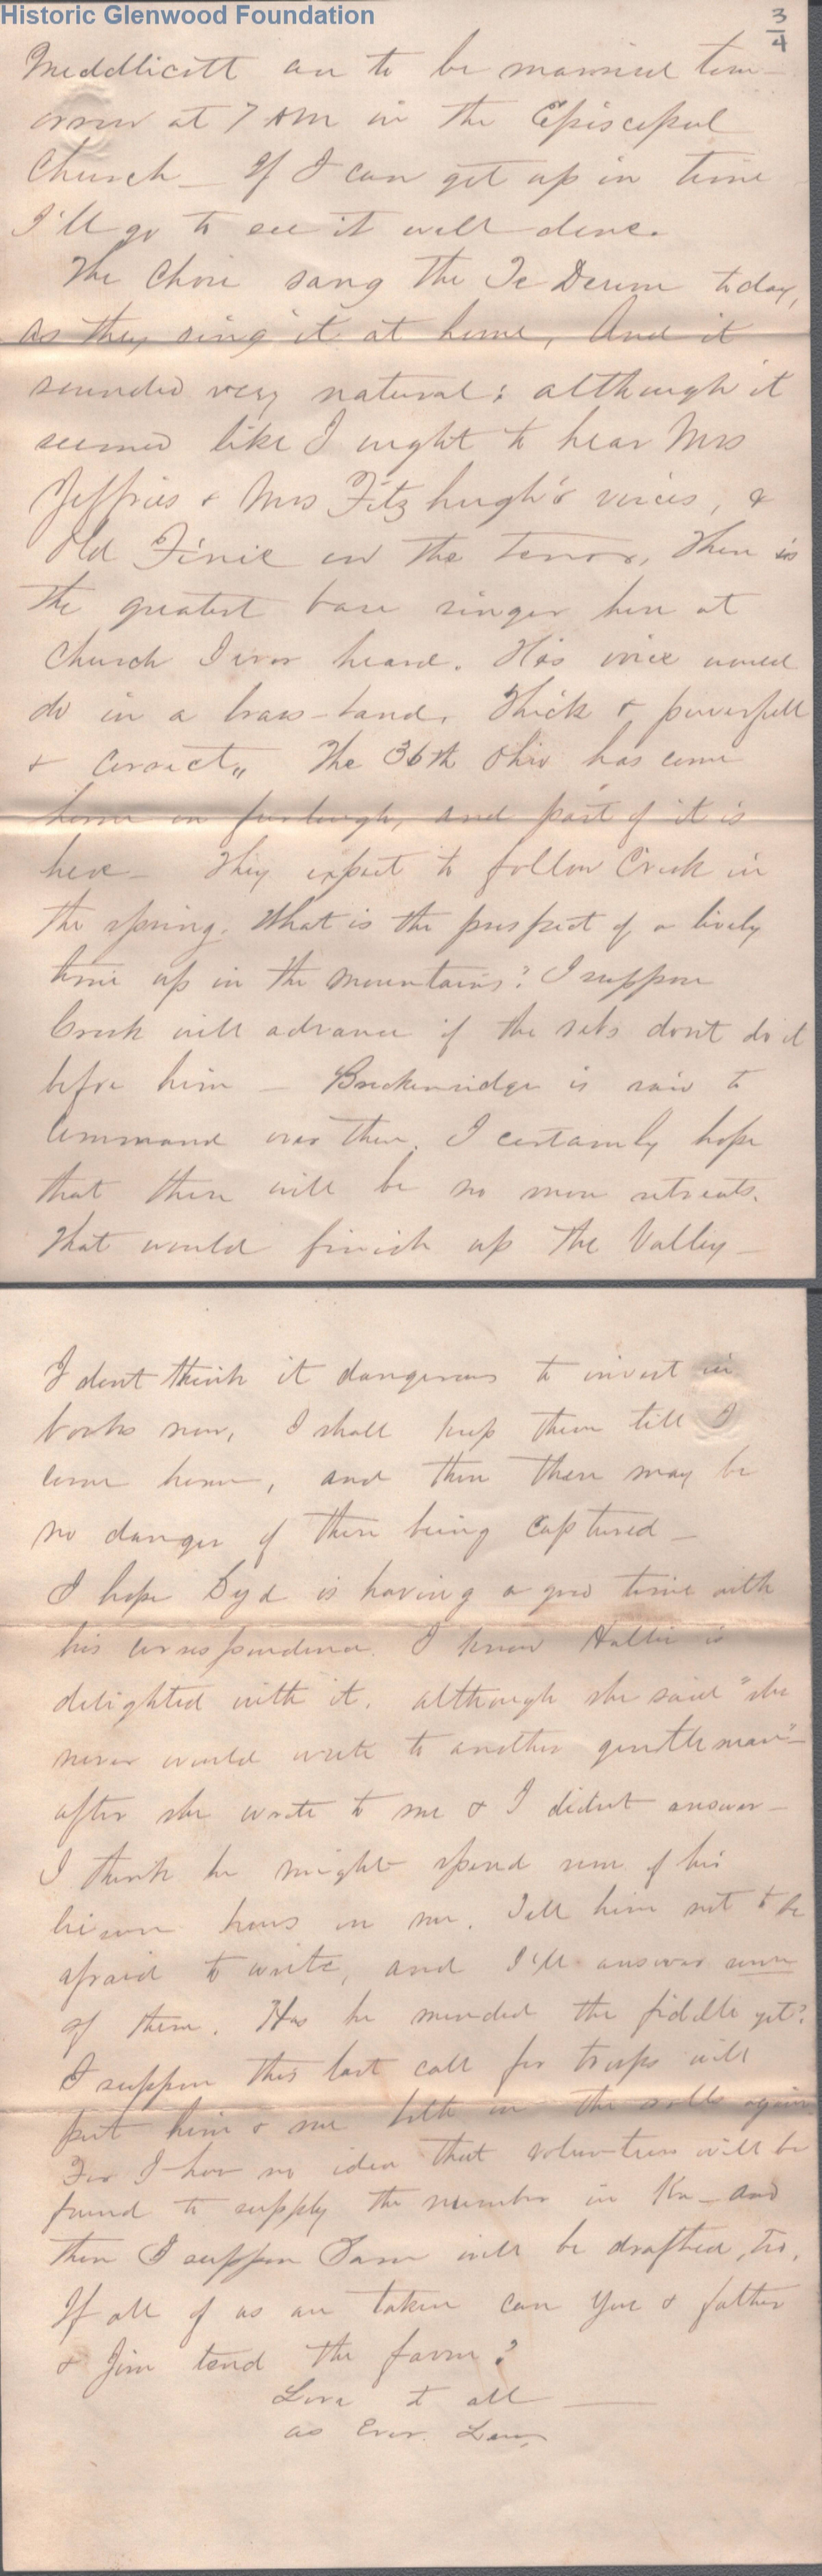 Historic Glenwood Foundation
3/4
Meddlicott are to be married tom-
orrow at 7 AM in the Episcopal
Church – If I can get up in time
I'll go to see it well done.
The Choir sang the Te Deum today,
as they sing it at home, And it
sounded very natural; although it
seemed like I ought to hear Mrs
Jeffries & Mrs Fitzhugh's voices, &
Old Finie on the tenor, There is
the greatest base singer here at
Church I ever heard. His voice would
do in a brass-band, Thick & powerfull
& correct,, The 36th Ohio has come
home on furlough, and part of it is
here – They expect to follow Crook in
the spring. What is the prospect of a lively
time up in the mountains? I suppose
Crook will advance if the rebs dont do it
before him – Breckenridge is said to
command over them. I certainly hope
that there will be no more retreats.
That would finish up the Valley –
I dont think it dangerous to invest in
books now, I shall keep them till I
come home, and then there may be
no danger of there being captured –
I hope Syd is having a good time with
his correspondence. I know Hallie is
delighted with it, although she said "she
never would write to another gentleman" –
after she wrote to me & I didnt answer –
I think he might spend some of his
leisure hours on me. Tell him not to be
afraid to write, and I'll answer some
of them. Has he mended the fiddle yet?
I suppose this last call for troops will
put him & me both on the rolls again
For I have no idea that volunteers will be
found to supply the number in Ka – and
then I suppose Sam will be drafted, too,
If all of us are taken can you & father
& Jim tend the farm?
Love to all –
as Ever. Lew,